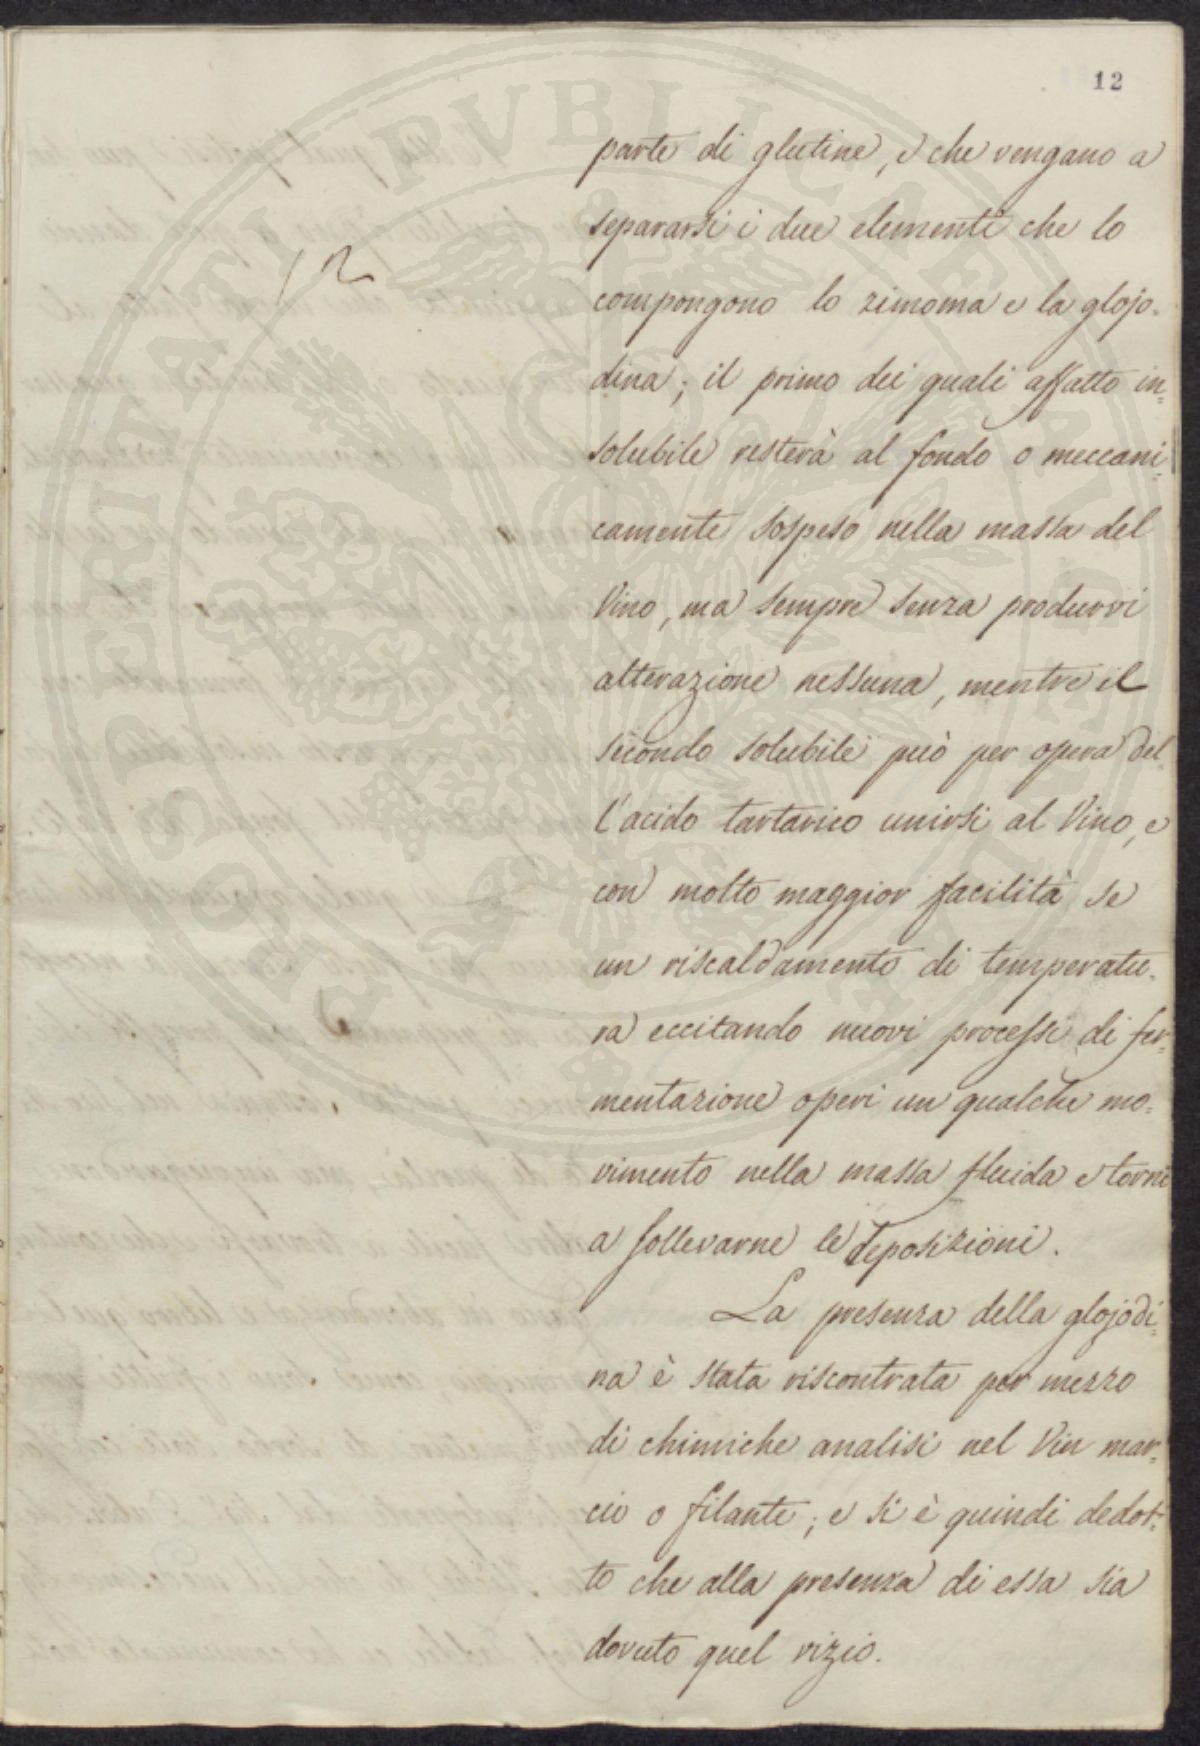 12
12
parte di glutine, e che vengano a
separarsi i due elementi che lo
compongono lo zimoma e la glojo-
dina; il primo dei quali affatto in=
solubile resterà al fondo o meccani=
camente sospeso nella massa del
Vino, ma sempre senza produrvi
alterazione nessuna, mentre il
secondo solubile può per opera del=
l'acido tartarico unirsi al Vino, e
con molto maggior facilità se
un riscaldamento di temperatu-
ra eccitando nuovi processi di fer=
mentazione operi un qualche mo=
vimento nella massa fluida e torni
a sollevarne le deposizioni.
La presenza della glojodi=
na è stata riscontrata per mezzo
di chimiche analisi nel Vin mar=
cio o filante; e si è quindi dedot=
to che alla presenza di essa sia
dovuto quel vizio.
PROSPERITATI PVBLICAE AVGENDAE